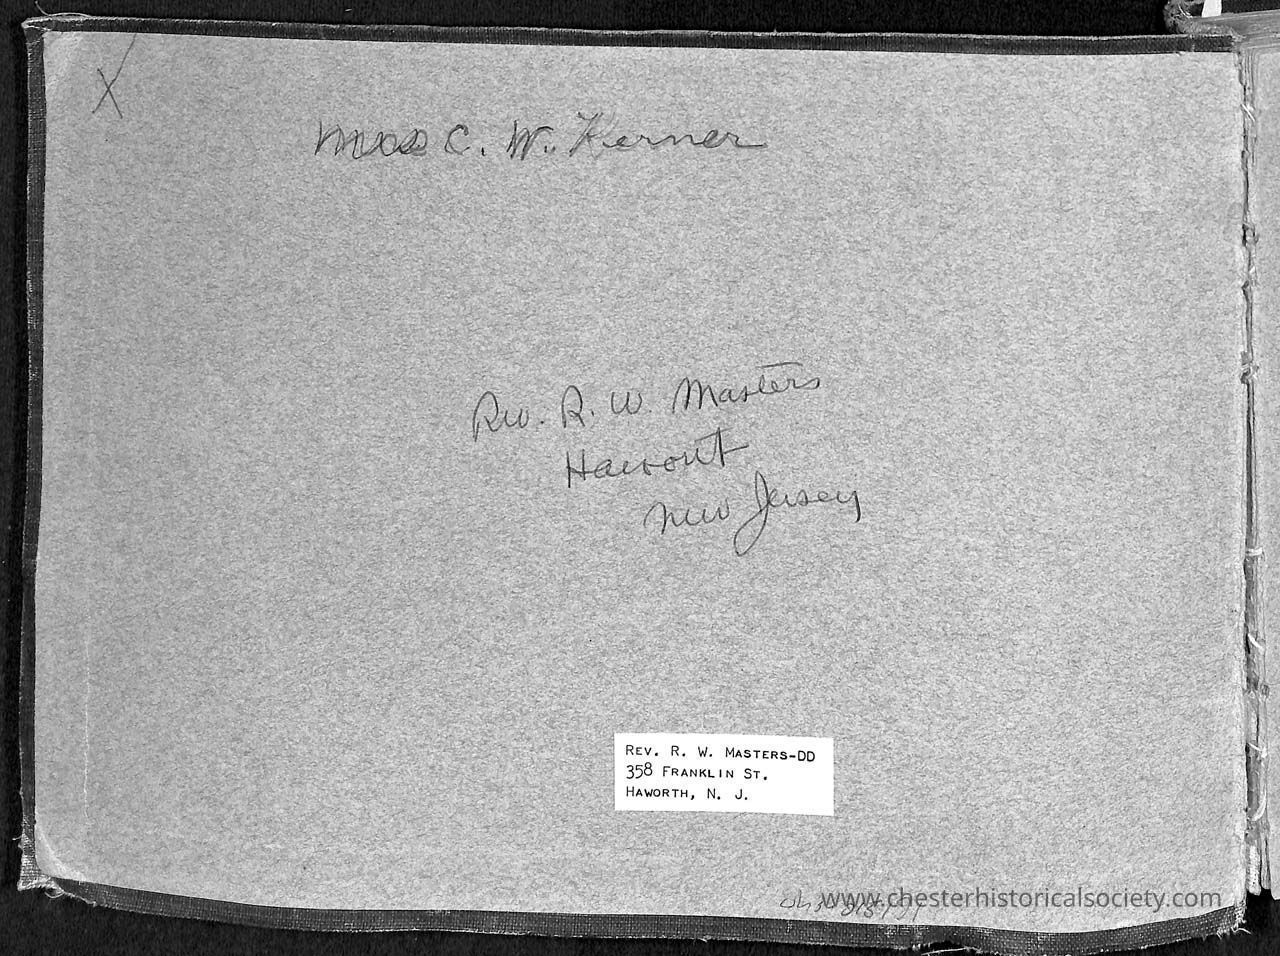 X
Miss C. W. Kerner
Rev. R. W. Masters
Haworth
New Jersey
REV. R. W. MASTERS-DD
358 FRANKLIN ST.
HAWORTH, N. J.
www.chesterhistoricalsociety.com